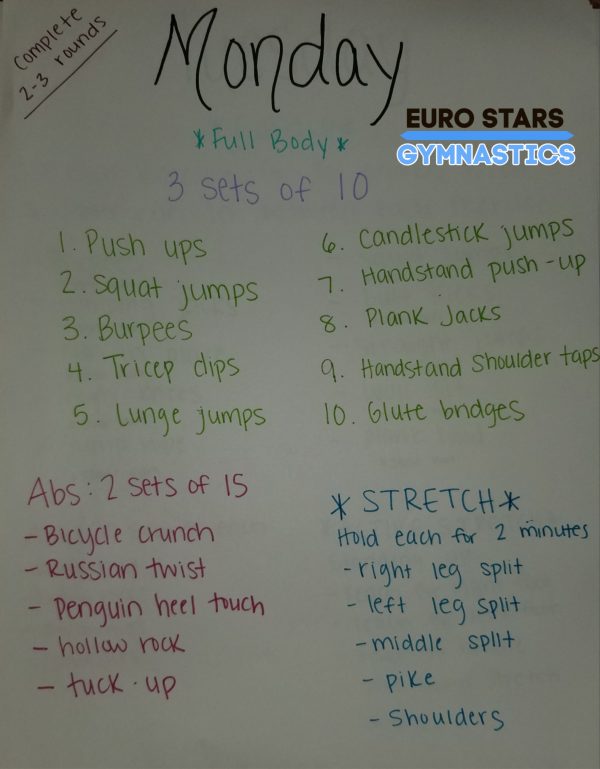 Complete
2-3 rounds
Monday
EURO STARS
GYMNASTICS
*Full Body*
3 sets of 10
1. Push ups
2. Squat jumps
3. Burpees
4. Tricep dips
5. Lunge jumps
6. Candlestick jumps
7. Handstand push-up
8. Plank Jacks
9. Handstand Shoulder taps
10. Glute bridges
Abs: 2 sets of 15
- Bicycle crunch
- Russian twist
- Penguin heel touch
- hollow rock
- tuck-up
*STRETCH*
Hold each for 2 minutes
- right leg split
- left leg split
- middle split
- pike
- Shoulders